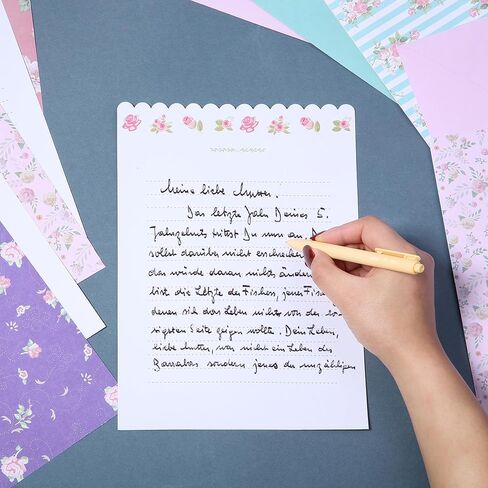 Meine liebe Mutter.
Das letzte Jahr Deines 5.
Jahrzehnts trittst Du nun an. D
sollst darüber nicht erschrecken
das würde daran nichts änder
bist die Letzte der Fischer, jener Fisc
denen sie das Leben nichts von der ro-
sigsten Seite zeigen wollte. Dein Leben,
liebe Mutter, war nicht ein Leben des
Barrabas sondern jenes der unzähligen